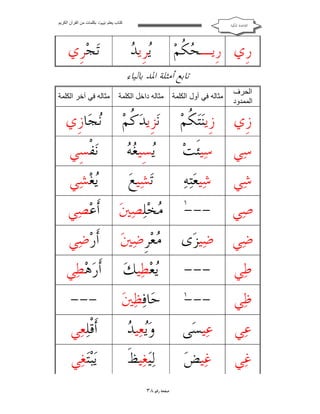 كتاب يعلم تهجيد بكلمات من القرآن الكريم
رِي رِيـحُكُمْ يُرِيدُ تَجْرِي
تابع أمثلة المد بالياء
الحرف الممدود مثاله في أول الكلمة مثاله داخل الكلمة مثاله في آخر الكلمة
زِي زِينَتَكُمْ نَزِيدَكُمْ نُجَازِي
سِي سِيئَتْ يُسِيغُهُ نَفْسِي
شِي شِيعَتِهِ تَشِيعَ يُغْشِي
صِي ---١ مُخْلِصِينَ أَعْصِي
ضِي ضِيزَى مُعْرِضِينَ أَرْضِي
طِي --- يُعْطِيكَ أَرَهْطِي
ظِي ---١ حَافِظِينَ ---
عِي عِيسَى وَيُعِيدُ أَقْلِعِي
غِي غِيضَ لِيَغِيظَ يَبْتَغِي
صفحة رقم ٣٨